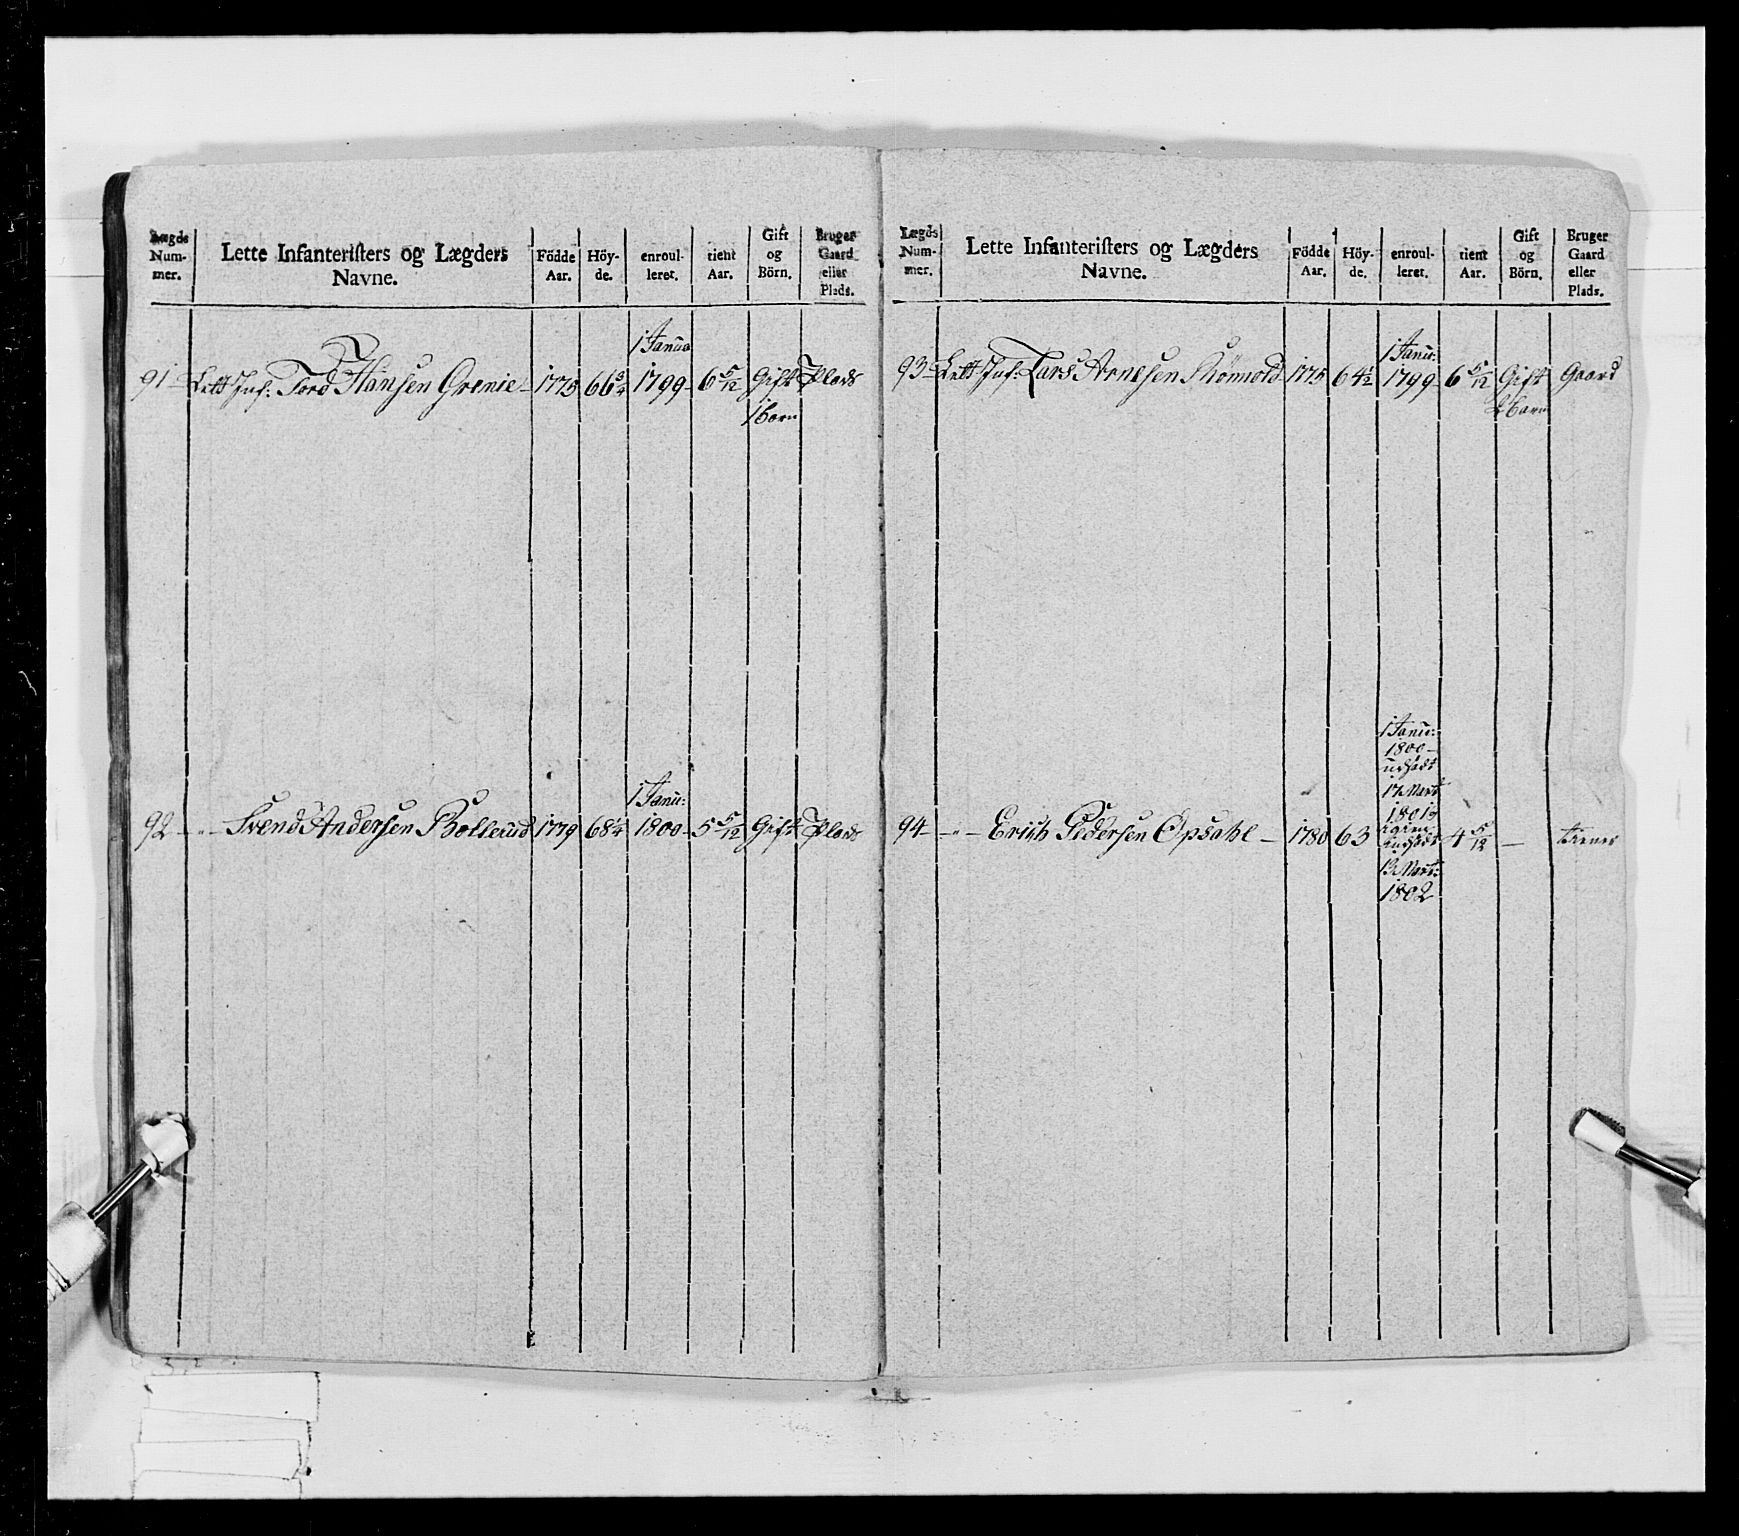 Lægds Num- mer. | Lette Infanteristers og Lægders Navne. | Födde Aar. | Höy- de. | enroul- leret. | tient Aar. | Gift og Börn. | Bruger Gaard eller Plads.
1 Janua
91 Lett Inf: Tord Hansen Grenie - 1775 66 3/4 1799 - 6 5/12 Gift Plads
1 barn
1 Janu:
92 - " - Svend Andersen Bollerud 1779 68 1/4 1800 - 5 5/12 Gift Plads
Lægds Num- mer. | Lette Infanteristers og Lægders Navne. | Födde Aar. | Höy- de. | enroul- leret. | tient Aar. | Gift og Börn. | Bruger Gaard eller Plads.
1 Janu:
93 Lett Inf: Lars Arnesen 1775 64 1/2 1799 - 6 5/12 Gift Gaard
2 barn
1 Janu:
1800 -
udsadt
17 Mart
1801
94 - " - Erich Pedersen Opsahl - 1780 63 igien udsadt 4 5/12 - tienes
13 Mart:
1802